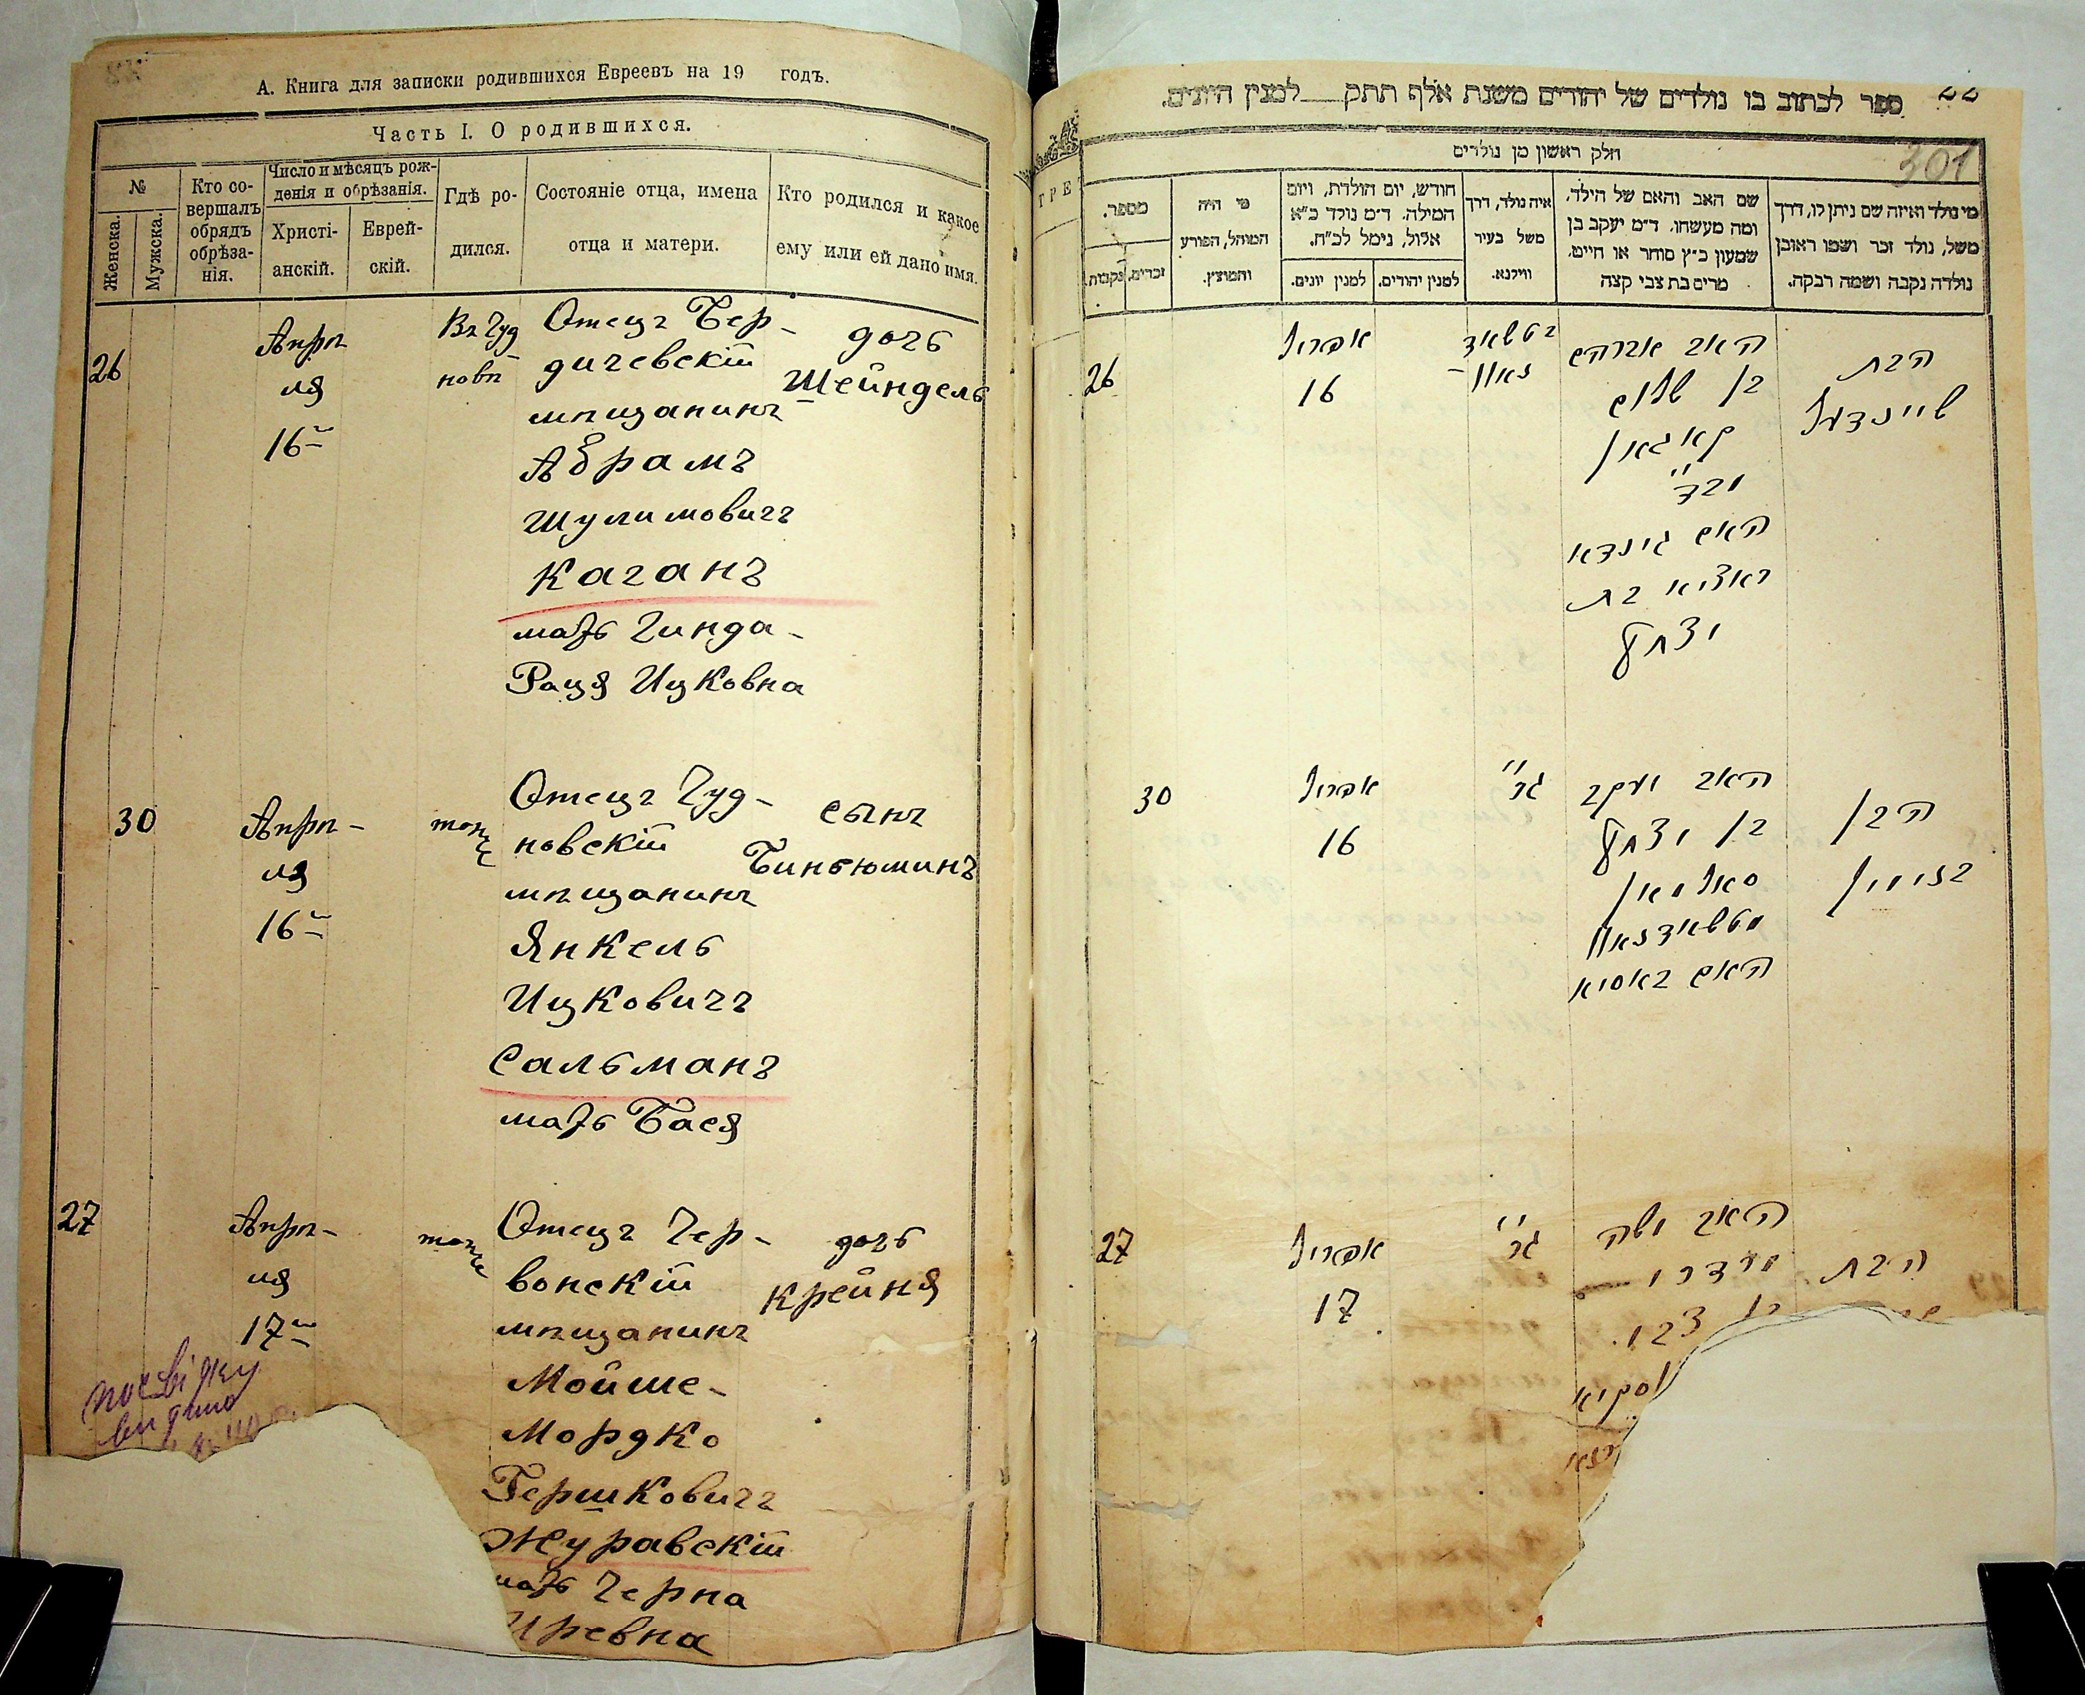 А. Книга для записки родившихся Евреевъ на 19 годъ.
Часть I. О родившихся.
№
Женска.
Мужска.
Кто со-
вершалъ
обрядъ
обрѣза-
нія.
Число и мѣсяцъ рож-
денія и обрѣзанія.
Христі-
анскій.
Еврей-
скій.
Гдѣ ро-
дился.
Состояніе отца, имена
отца и матери.
Кто родился и какое
ему или ей дано имя.
26
Апрѣ
ля
16
Въ Чуд
новѣ
Отецъ Бер-
дичевскій
мѣщанинъ
Абрамъ
Шулимовичъ
Каганъ
мать Гинда-
Рация Ицковна
дочь
Шейндель
30
Апрѣ-
ля
16
тоже
Отецъ Чуд-
новскій
мѣщанинъ
Янкель
Ицковичъ
Сальманъ
мать Бася
сынъ
Биньюминъ
27
Апрѣ-
ля
17
тоже
Отецъ Чер-
вонскій
мѣщанинъ
Мойше-
Мордко
Гершковичъ
Журавскій
мать Черна
дочь
Крейня
посвідку
видано
22
301
ספר לכתוב בו נולדים של יהודים משנת אלף תתק למנין היונים.
חלק ראשון מן נולדים
מי נולד ואיזה שם ניתן לו, דרך
משל, נולד זכר ושמו ראובן
נולדה נקבה ושמה רבקה.
שם האב והאם של הילד,
ומה מעשהו. ד״מ יעקב בן
שמעון כ״ץ סוחר או חיים,
מרים בת צבי קצה
איה נולד, דרך
משל בעיר
ווילנא.
חודש, יום הולדת, ויום
המילה. ד״מ נולד כ״א
אלול, נימל לכ״ח.
למנין יהודים.
למנין יונים.
מי היה
המוהל, הפורע
והמוצץ.
מספר.
זכרים.
נקבות.
26
אפריל
16
האב אברהם
בן שלום
קאגאן
האם גינדא
ראציא בת
יצחק
הבת
שיינדעל
30
אפריל
16
האב יעקב
בן יצחק
סאלמאן
האם באסיא
הבן
בנימין
27
אפריל
17
האב משה
מרדכי
בן צבי
הבת